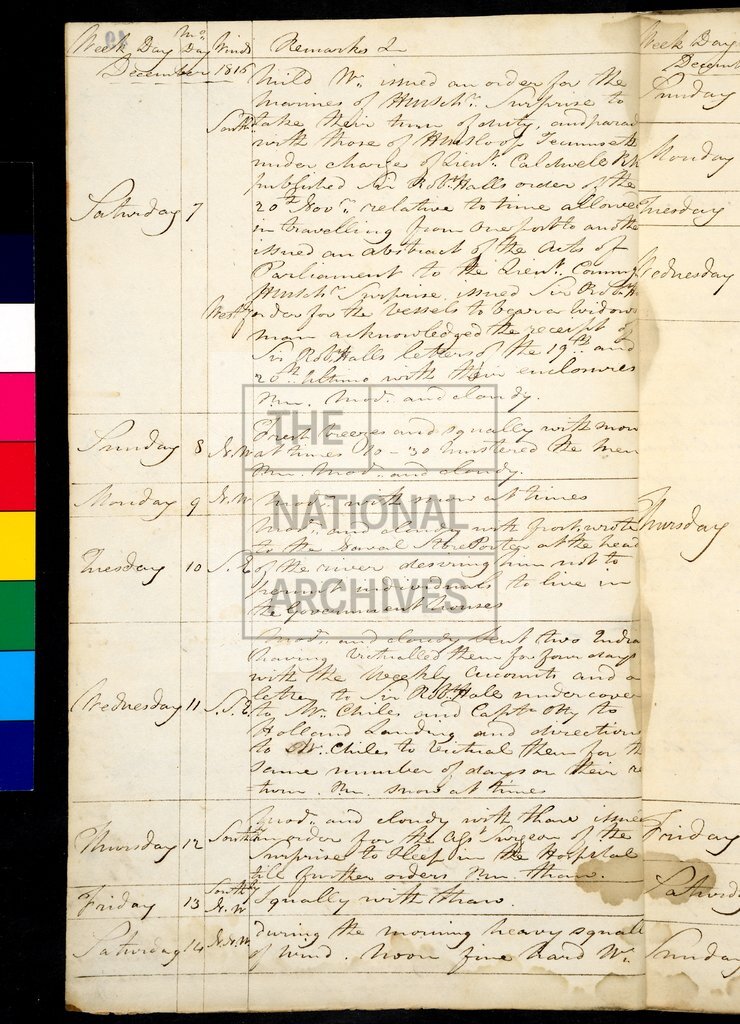 Week Day Mo. Day Winds Remarks &c
December 1816
Mild Wr. issued an order for the
Marines of HMSchr. Surprise to
South. take their turn of duty, and parade
with those of HMSloop Tecumseth
under charge of Lieut. Caldwell RM
published Sir Robt. Halls order of the
Saturday 7 20th Novr. relative to time allowed
in travelling from one port to another
issued an abstract of the Acts of
Parliament to the Lieut. Commg
HMSchr. Surprise, issued Sir Robt. H
West order for the Vessels to bear a widows
man acknowledged the receipt of
Sir Robt. Halls letters of the 19th and
20th ultimo with their enclosures
Pm. Modr. and cloudy.
Fresh breezes and squally with snow
Sunday 8 N.W at times 10-30 mustered the men
Pm. Modr. and cloudy.
Monday 9 N.W Modr. with snow at times
Modr. and cloudy with frost, wrote
to the Naval Store Porter at the head
Tuesday 10 S.E of the river desiring him not to
permit individuals to live in
the Government houses
Modr. and cloudy sent two Indians
having victualled them for four days
with the Weekly Accounts and a
letter to Sir Robt. Hall under cover
Wednesday 11 S.S.E. to Mr. Chiles and Captn. Otty to
Holland Landing and directions
to Mr. Chiles to victual them for the
same number of days on their re
-turn. Pm. snow at times
Modr. and cloudy with thaw issued
Thursday 12 South an order for the Asst. Surgeon of the
Surprise to sleep in the Hospital
till further orders Pm. thaw.
South
Friday 13 N.W Squally with thaw.
Saturday 14 N.N.W. during the morning heavy squalls
of wind. Noon fine hard Wr.
Week Day
Decem
Sunday
Monday
Tuesday
Wednesday
Thursday
Friday
Saturday
Sunday
THE
NATIONAL
ARCHIVES